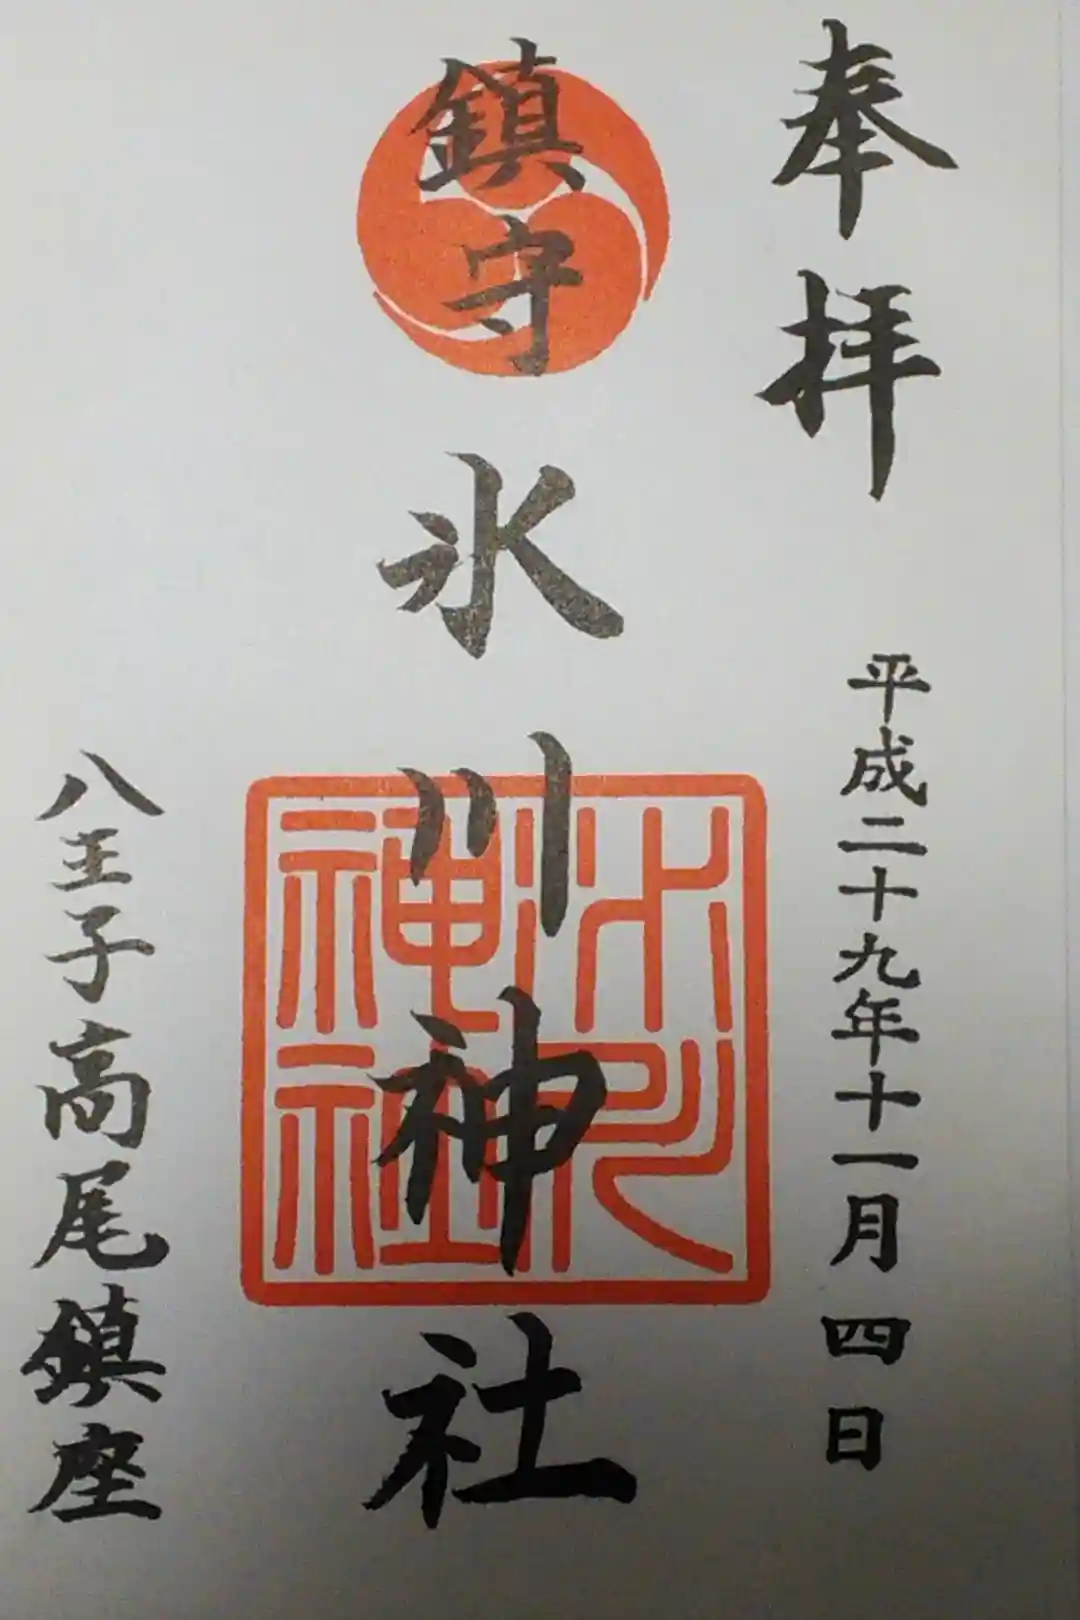 奉拝
平成二十九年十一月四日
鎮守
氷川神社
氷川
神社
八王子高尾鎮座